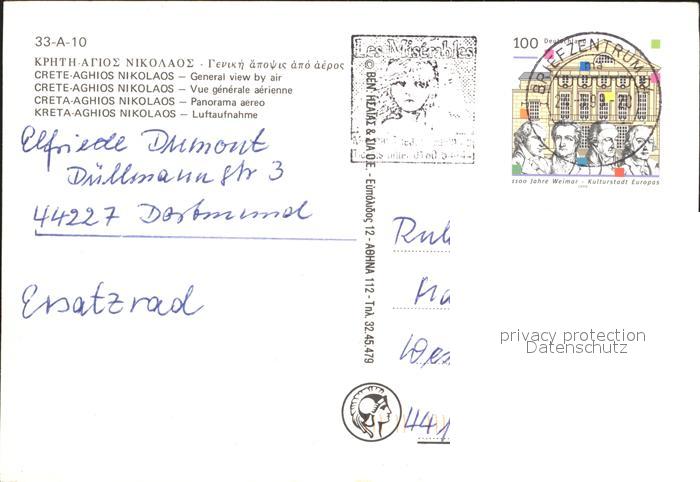 33-A-10
ΚΡΗΤΗ-ΑΓΙΟΣ ΝΙΚΟΛΑΟΣ - Γενική ἄποψις ἀπό ἀέρος
CRETE-AGHIOS NIKOLAOS – General view by air
CRETE-AGHIOS NIKOLAOS – Vue générale aérienne
CRETA-AGHIOS NIKOLAOS – Panorama aereo
KRETA-AGHIOS NIKOLAOS – Luftaufnahme
Elfriede Dumont
Düllmannstr 3
44227 Dortmund
Ersatzrad
Les Misérables
© ΒΕΝ. ΗΣΑΪΑΣ & ΣΙΑ Ο.Ε. - Εὐπόλιδος 12 - ΑΘΗΝΑ 112 - Τηλ. 32.45.479
100 Deutschland
BRIEFZENTRUM
1100 Jahre Weimar - Kulturstadt Europas
1999
privacy protection
Datenschutz